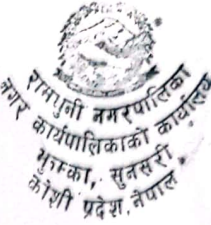 रामधुनी नगरपालिका
नगर कार्यपालिकाको कार्यालय
सुनसरी
कोशी प्रदेश, नेपाल